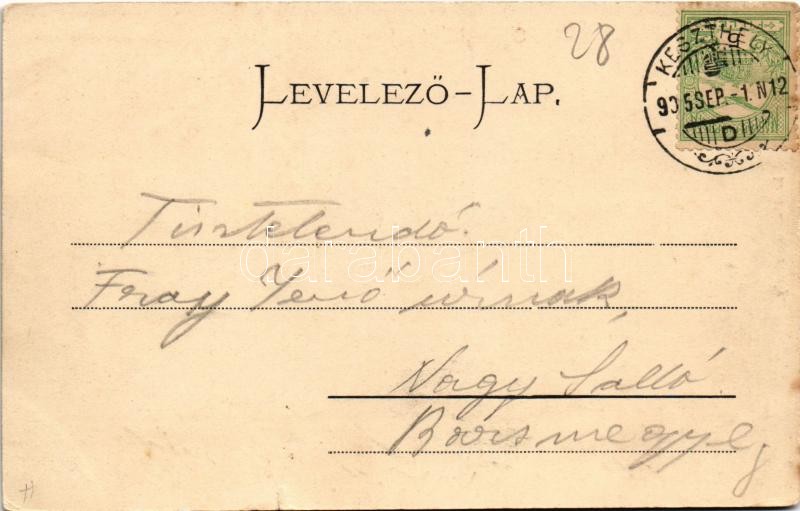 28
KESZTHELY
905 SEP. -1. N12
D
LEVELEZŐ-LAP.
Tisztelendő
Jenő úrnak
Nagy Salló
darabanth